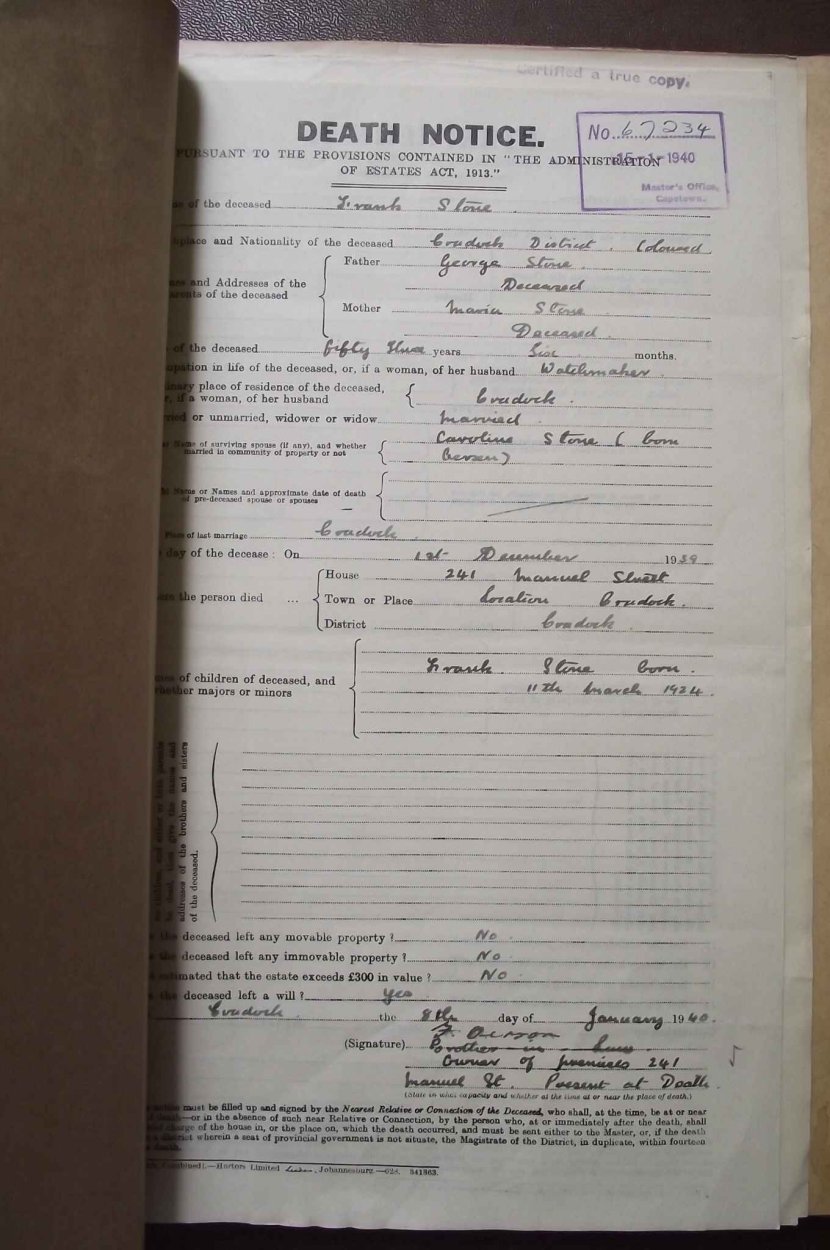 Certified a true copy.
DEATH NOTICE.
No. 67234
PURSUANT TO THE PROVISIONS CONTAINED IN "THE ADMINISTRATION
OF ESTATES ACT, 1913."
1940
Master's Office,
Capetown.
of the deceased Frank Stone
place and Nationality of the deceased Cradock District. Coloured.
Father George Stone.
and Addresses of the
Deceased
of the deceased
Mother Maria Stone
Deceased.
of the deceased Fifty Three years Six months.
in life of the deceased, or, if a woman, of her husband Watchmaker.
place of residence of the deceased,
if a woman, of her husband Cradock.
or unmarried, widower or widow Married.
Name of surviving spouse (if any), and whether
married in community of property or not
Caroline Stone (born
Name or Names and approximate date of death
of pre-deceased spouse or spouses
Place of last marriage Cradock
day of the decease: On 1st December 1939
House 241 Manuel Street
the person died ... Town or Place Location Cradock.
District Cradock.
Frank Stone born.
of children of deceased, and
whether majors or minors
11th March 1924.
give the names and
addresses of the brothers and sisters
of the deceased.
the deceased left any movable property? No
deceased left any immovable property? No
estimated that the estate exceeds £300 in value? No
the deceased left a will? Yes
Cradock the 8th day of January 1940.
(Signature)
Brother in Law
Owner of premises 241
Manuel St. Present at Death.
(State in what capacity and whether at the time at or near the place of death.)
must be filled up and signed by the Nearest Relative or Connection of the Deceased, who shall, at the time, be at or near
death—or in the absence of such near Relative or Connection, by the person who, at or immediately after the death, shall
charge of the house in, or the place on, which the death occurred, and must be sent either to the Master, or, if the death
wherein a seat of provincial government is not situate, the Magistrate of the District, in duplicate, within fourteen
death.
Combined).—Hortors Limited, Johannesburg.—628. 341863.